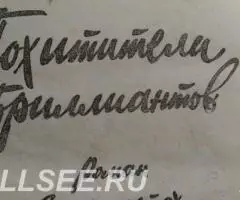 Похитители
бриллиантов
Роман
LLSEE.RU